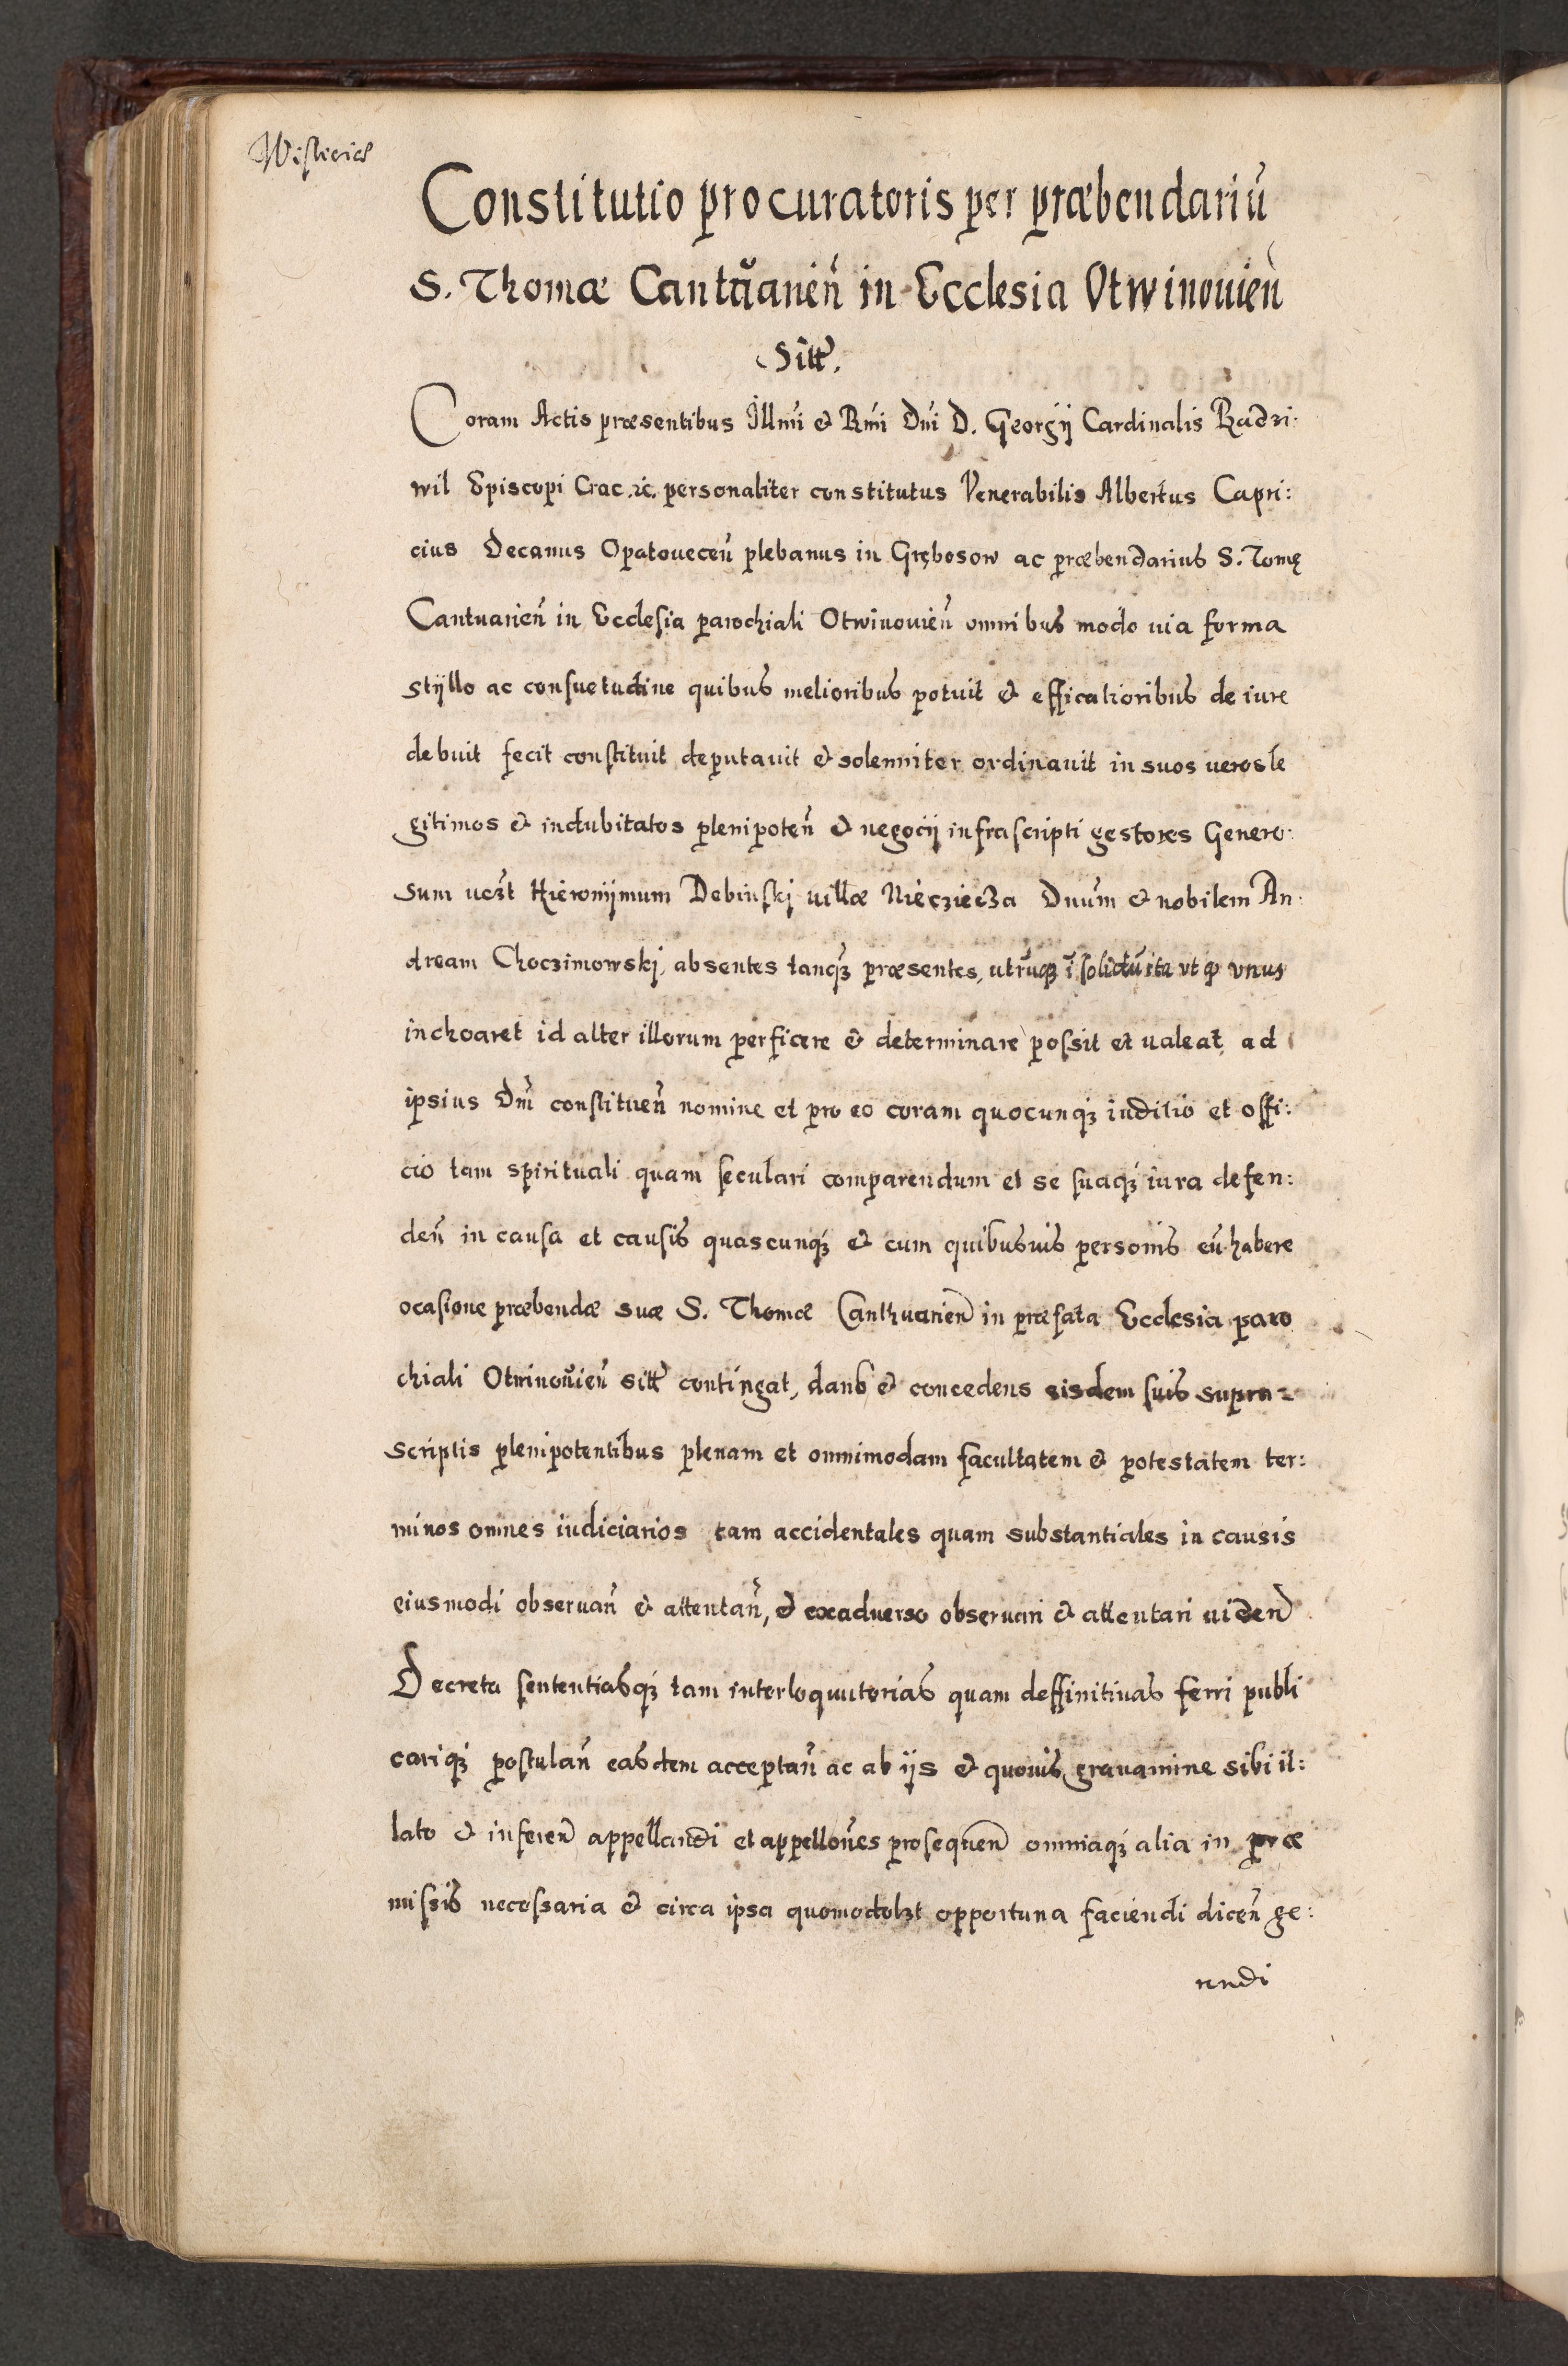 Constitutio procuratoris per præbendariũ
S. Thomæ Cantũanieñ in Ecclesia Otwinouień
Sitt̃.
Coram Actis præsentibus Illmi et Rmi Dni D. Georgij Cardinalis Radzi:
wil Episcopi Crac. ec. personaliter constitutus Venerabilis Albertus Capri:
cius Decanus Opatoueceñ plebanus in Grębosow ac præbendarius S. Tomę
Cantuarieñ in Ecclesia parochiali Otwinouieñ omnibus modo uia forma
stijllo ac consuetudine quibus melioribus potuit et efficatioribus de iure
debuit fecit constituit deputauit et solenniter ordinauit in suos ueros le
gitimos et indubitatos plenipoteñ et negocij infrascripti gestores Genero:
sum uczt Hieronijmum Debinski uillæ Niecziecza Dnum et nobilem An:
dream Choczimowski, absentes tanqz præsentes, utrũqz ĩ solidũ ita ut qd unus
inchoaret id alter illorum perficere et determinare possit et ualeat, ad
ipsius Dni constitueñ nomine et pro eo coram quocunqz iuditio et offi:
cio tam spirituali quam seculari comparendum et se suaqz iura defen:
deñ in causa et causis quascunqz et cum quibusuis personis eũ habere
ocasione præbendæ suæ S. Thomæ Canthuarieñ in præfata Ecclesia paro
chiali Otwinouieñ sitt̃ contingat, dans et concedens eisdem suis supra=
scriptis plenipotentibus plenam et omnimodam facultatem et potestatem ter:
minos omnes iudiciarios tam accidentales quam substantiales in causis
eiusmodi obseruañ et attentañ, et exaduerso obseruari et attentari uideñ
Decreta sententiasqz tam interloquutorias quam deffinitiuas ferri publi
cariqz postulañ easdem acceptañ ac ab ijs et quouis grauamine sibi il:
lato et infereñ appellandi et appelloñes prosequeñ omniaqz alia in præ
missis necessaria et circa ipsa quomodolzt opportuna faciendi diceñ ge:
rendi